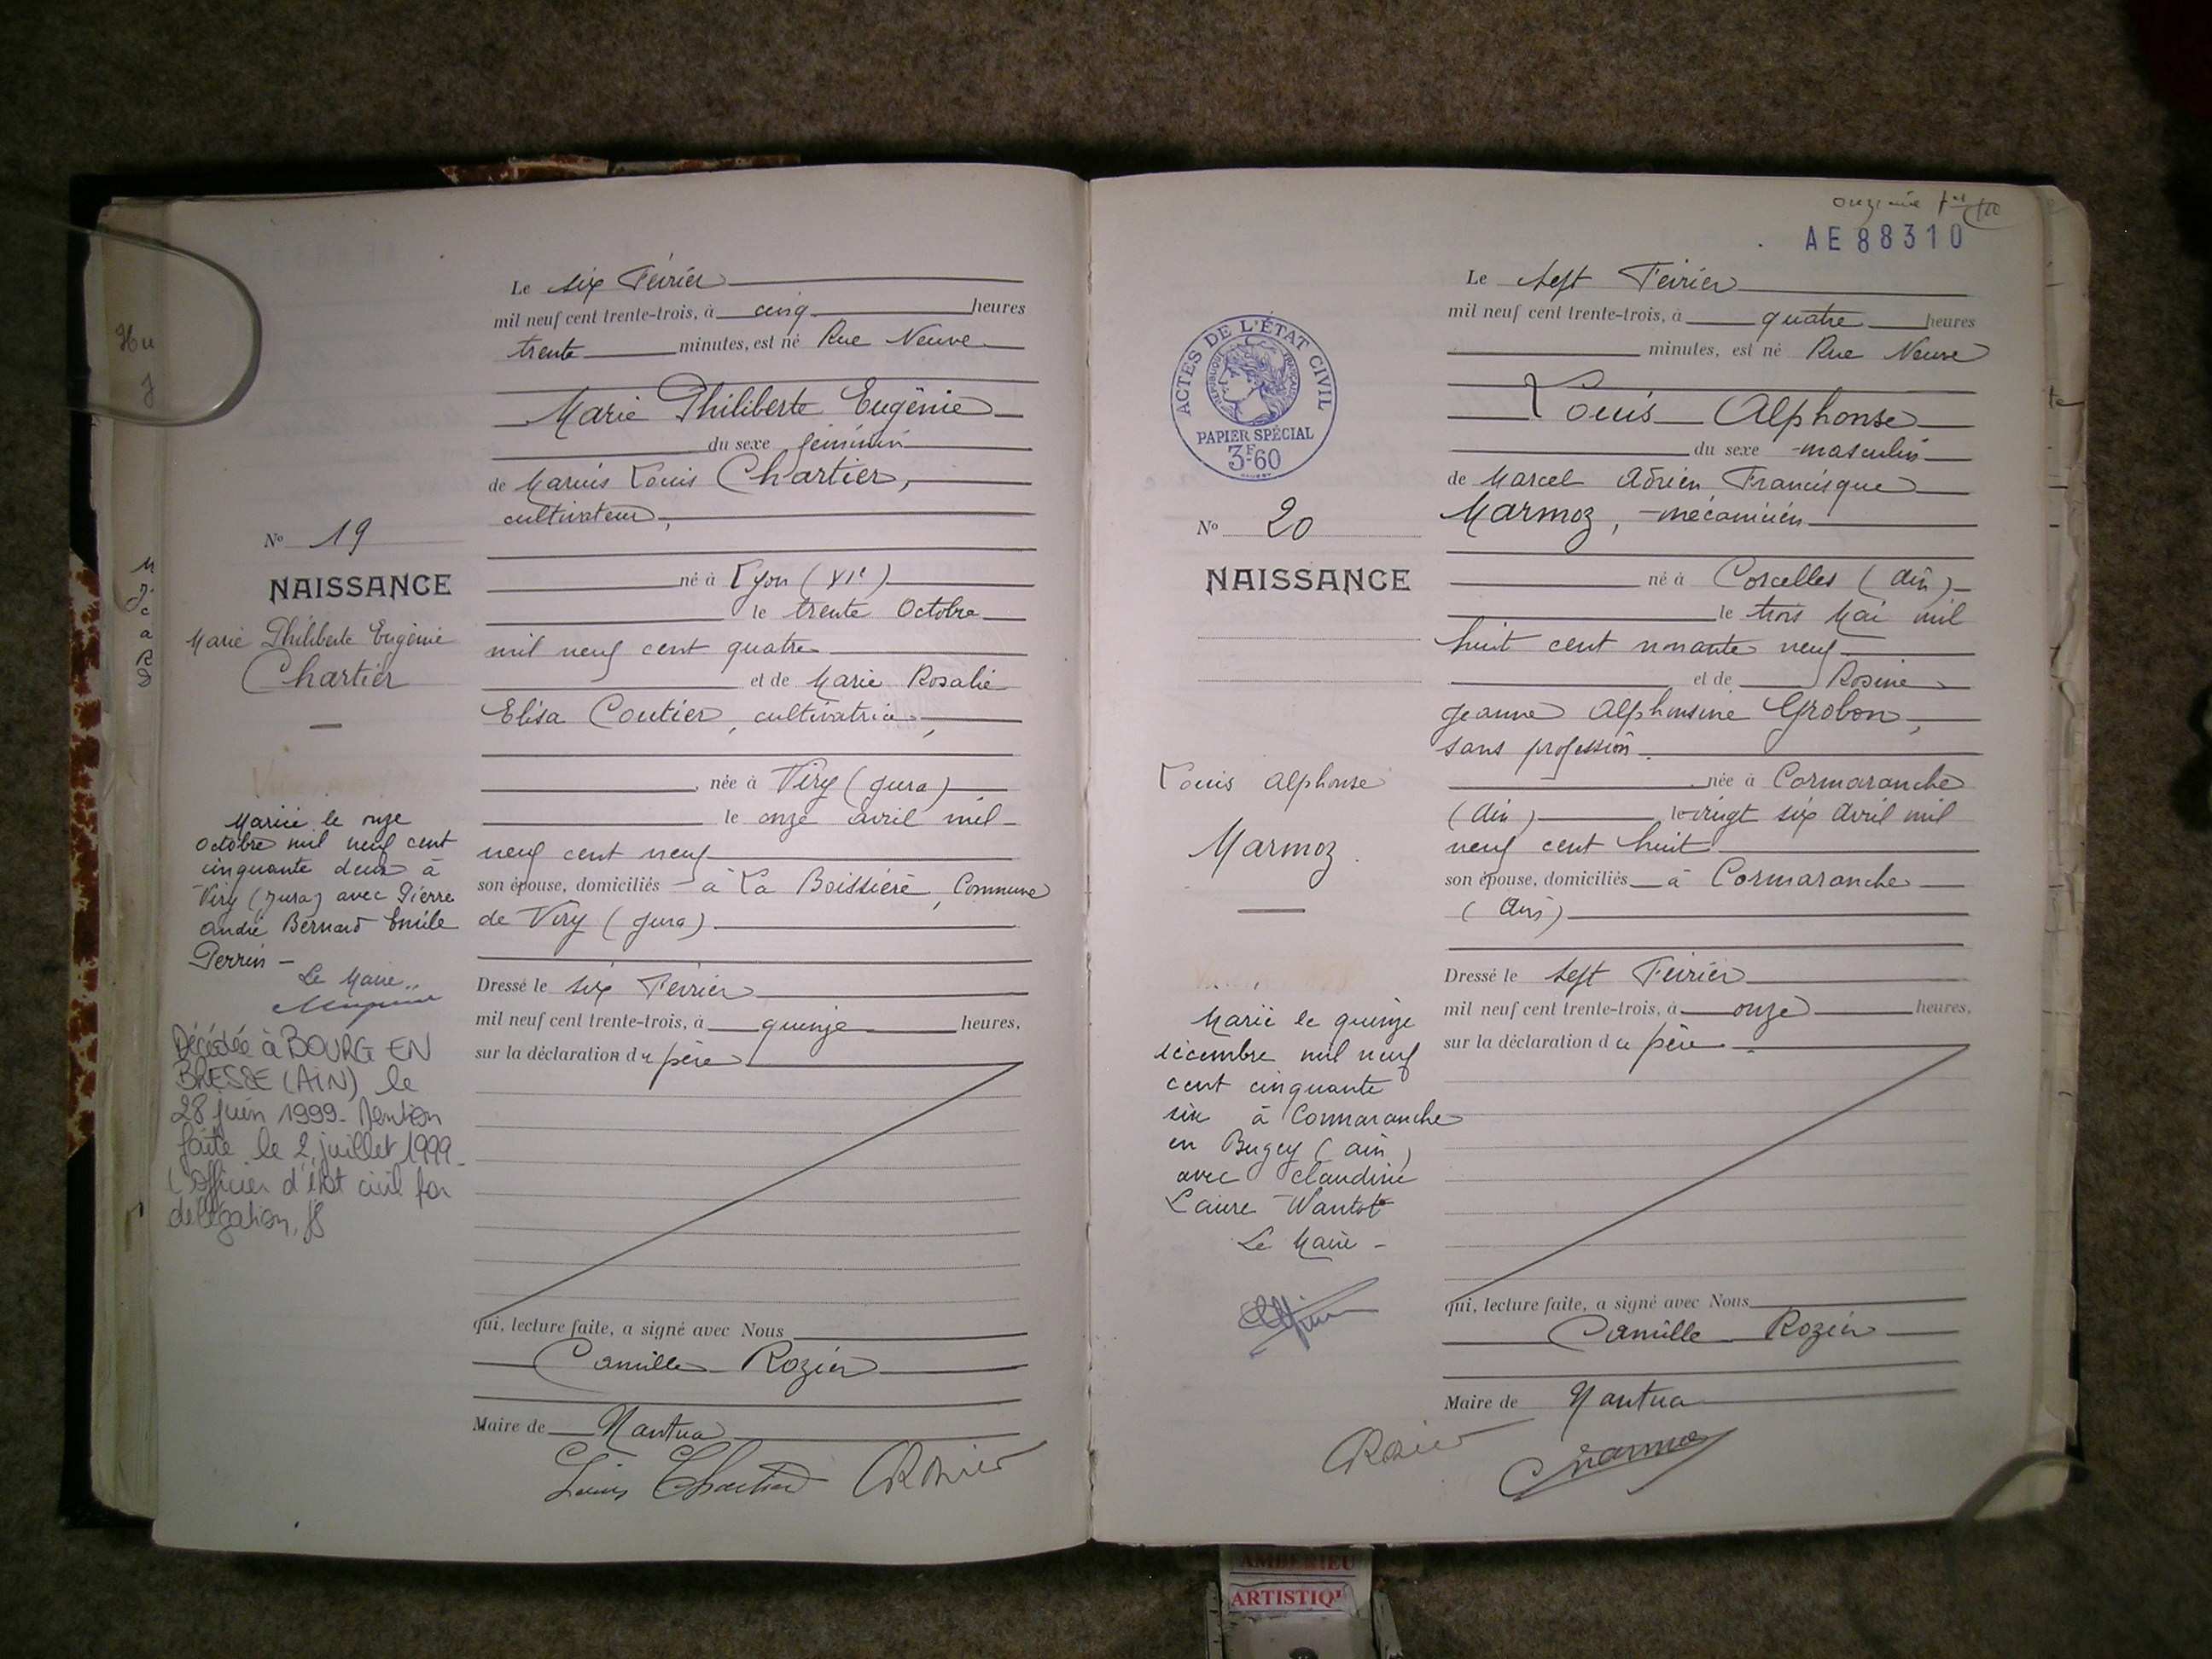 Le six Février
mil neuf cent trente-trois, à cinq heures
trente minutes, est né Rue Neuve
Marie Philiberte Eugénie
du sexe féminin
de Marius Louis Chartier,
cultivateur,
né à Lyon (VIe)
le trente Octobre
mil neuf cent quatre
et de Marie Rosalie
Elisa Coutier, cultivatrice,
née à Viry (Jura)
le onze avril mil
neuf cent neuf
son épouse, domiciliés à La Boissière, Commune
de Viry (Jura).
Dressé le six Février
mil neuf cent trente-trois, à quinze heures,
sur la déclaration du père
qui, lecture faite, a signé avec Nous
Camille Rozier
Maire de Nantua
Louis Chartier CRozier
No 19
NAISSANCE
Marie Philiberte Eugénie
Chartier
Mariée le onze
octobre mil neuf cent
cinquante deux à
Viry (Jura) avec Pierre
André Bernard Emile
Perrin -
Le Maire..
Décédée à BOURG EN
BRESSE (AIN) le
28 juin 1999. Mention
faite le 2 juillet 1999.
L'Officier d'état civil par
délégation,
onzième
AE88310
Le sept Février
mil neuf cent trente-trois, à quatre heures
minutes, est né Rue Neuve
Louis Alphonse
du sexe masculin
de Marcel Adrien Francisque
Marmoz, mécanicien
né à Corcelles (Ain)
le trois Mai mil
huit cent nonante neuf
et de Rosine
Jeanne Alphonsine Grobon,
sans profession.
née à Cormaranche
(Ain) le vingt six Avril mil
neuf cent huit
son épouse, domiciliés à Cormaranche
(Ain)
Dressé le sept Février
mil neuf cent trente-trois, à onze heures,
sur la déclaration du père.
qui, lecture faite, a signé avec Nous
Camille Rozier
Maire de Nantua
CRozier Marmoz
ACTES DE L'ÉTAT CIVIL
RÉPUBLIQUE FRANÇAISE
PAPIER SPÉCIAL
3F60
No 20
NAISSANCE
Louis Alphonse
Marmoz.
Marié le quinze
décembre mil neuf
cent cinquante
six à Cormaranche
en Bugey (Ain)
avec Claudine
Laure Wantot
Le Maire -
AMBERIEU
ARTISTIQ